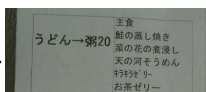 主食
うどん→粥20
鮭の蒸し焼き
菜の花の煮浸し
天の河そうめん
ｷﾗｷﾗｾﾞﾘｰ
お茶ゼリー